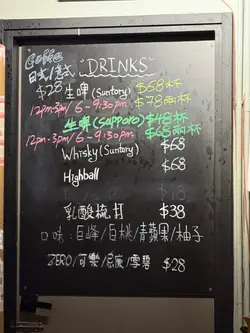 Coffee
日式/港式 "DRINKS"
$28 生啤 (Suntory) $58杯
12pm-3pm / 6-9:30pm $78兩杯
生啤 (Sapporo) $48杯
12pm-3pm / 6-9:30pm $68兩杯
Whisky (Suntory) $68
Highball $68
乳酸梳打 $38
口味:巨峰/白桃/青蘋果/柚子
ZERO/可樂/忌廉/雪碧 $28